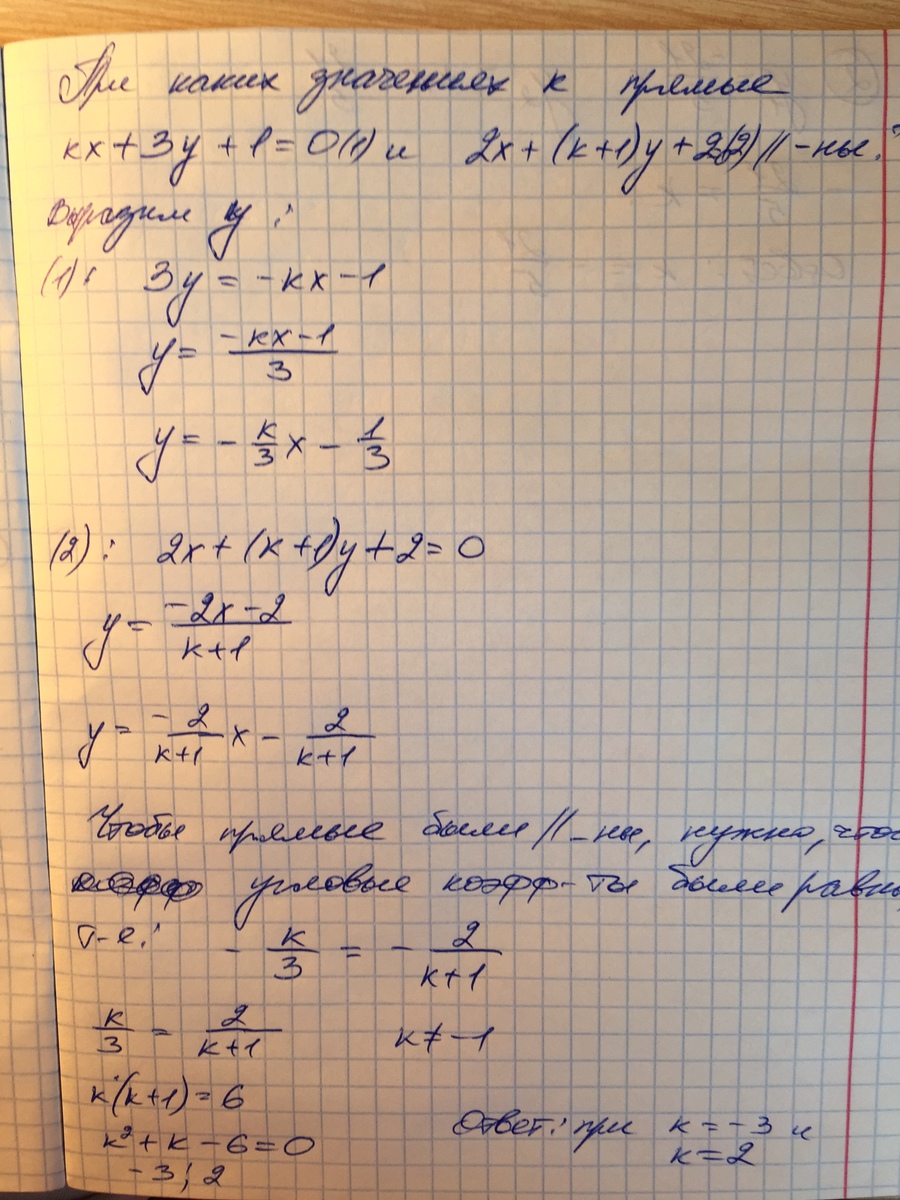 При каких значениях к прямые
kx + 3y + 1 = 0 (1) и 2x + (k+1)y + 2 (2) // -ны.?
Выразим y :
(1): 3y = -kx - 1
y = \frac{-kx-1}{3}
y = - \frac{k}{3} x - \frac{1}{3}
(2): 2x + (k+1)y + 2 = 0
y = \frac{-2x-2}{k+1}
y = \frac{-2}{k+1} x - \frac{2}{k+1}
Чтобы прямые были //-ны, нужно, что
угловые коэфф-ты были равны,
т-е: - \frac{k}{3} = - \frac{2}{k+1}
\frac{k}{3} = \frac{2}{k+1} k ≠ -1
k(k+1) = 6
k² + k - 6 = 0
-3; 2
Ответ: при k = -3 и
k = 2